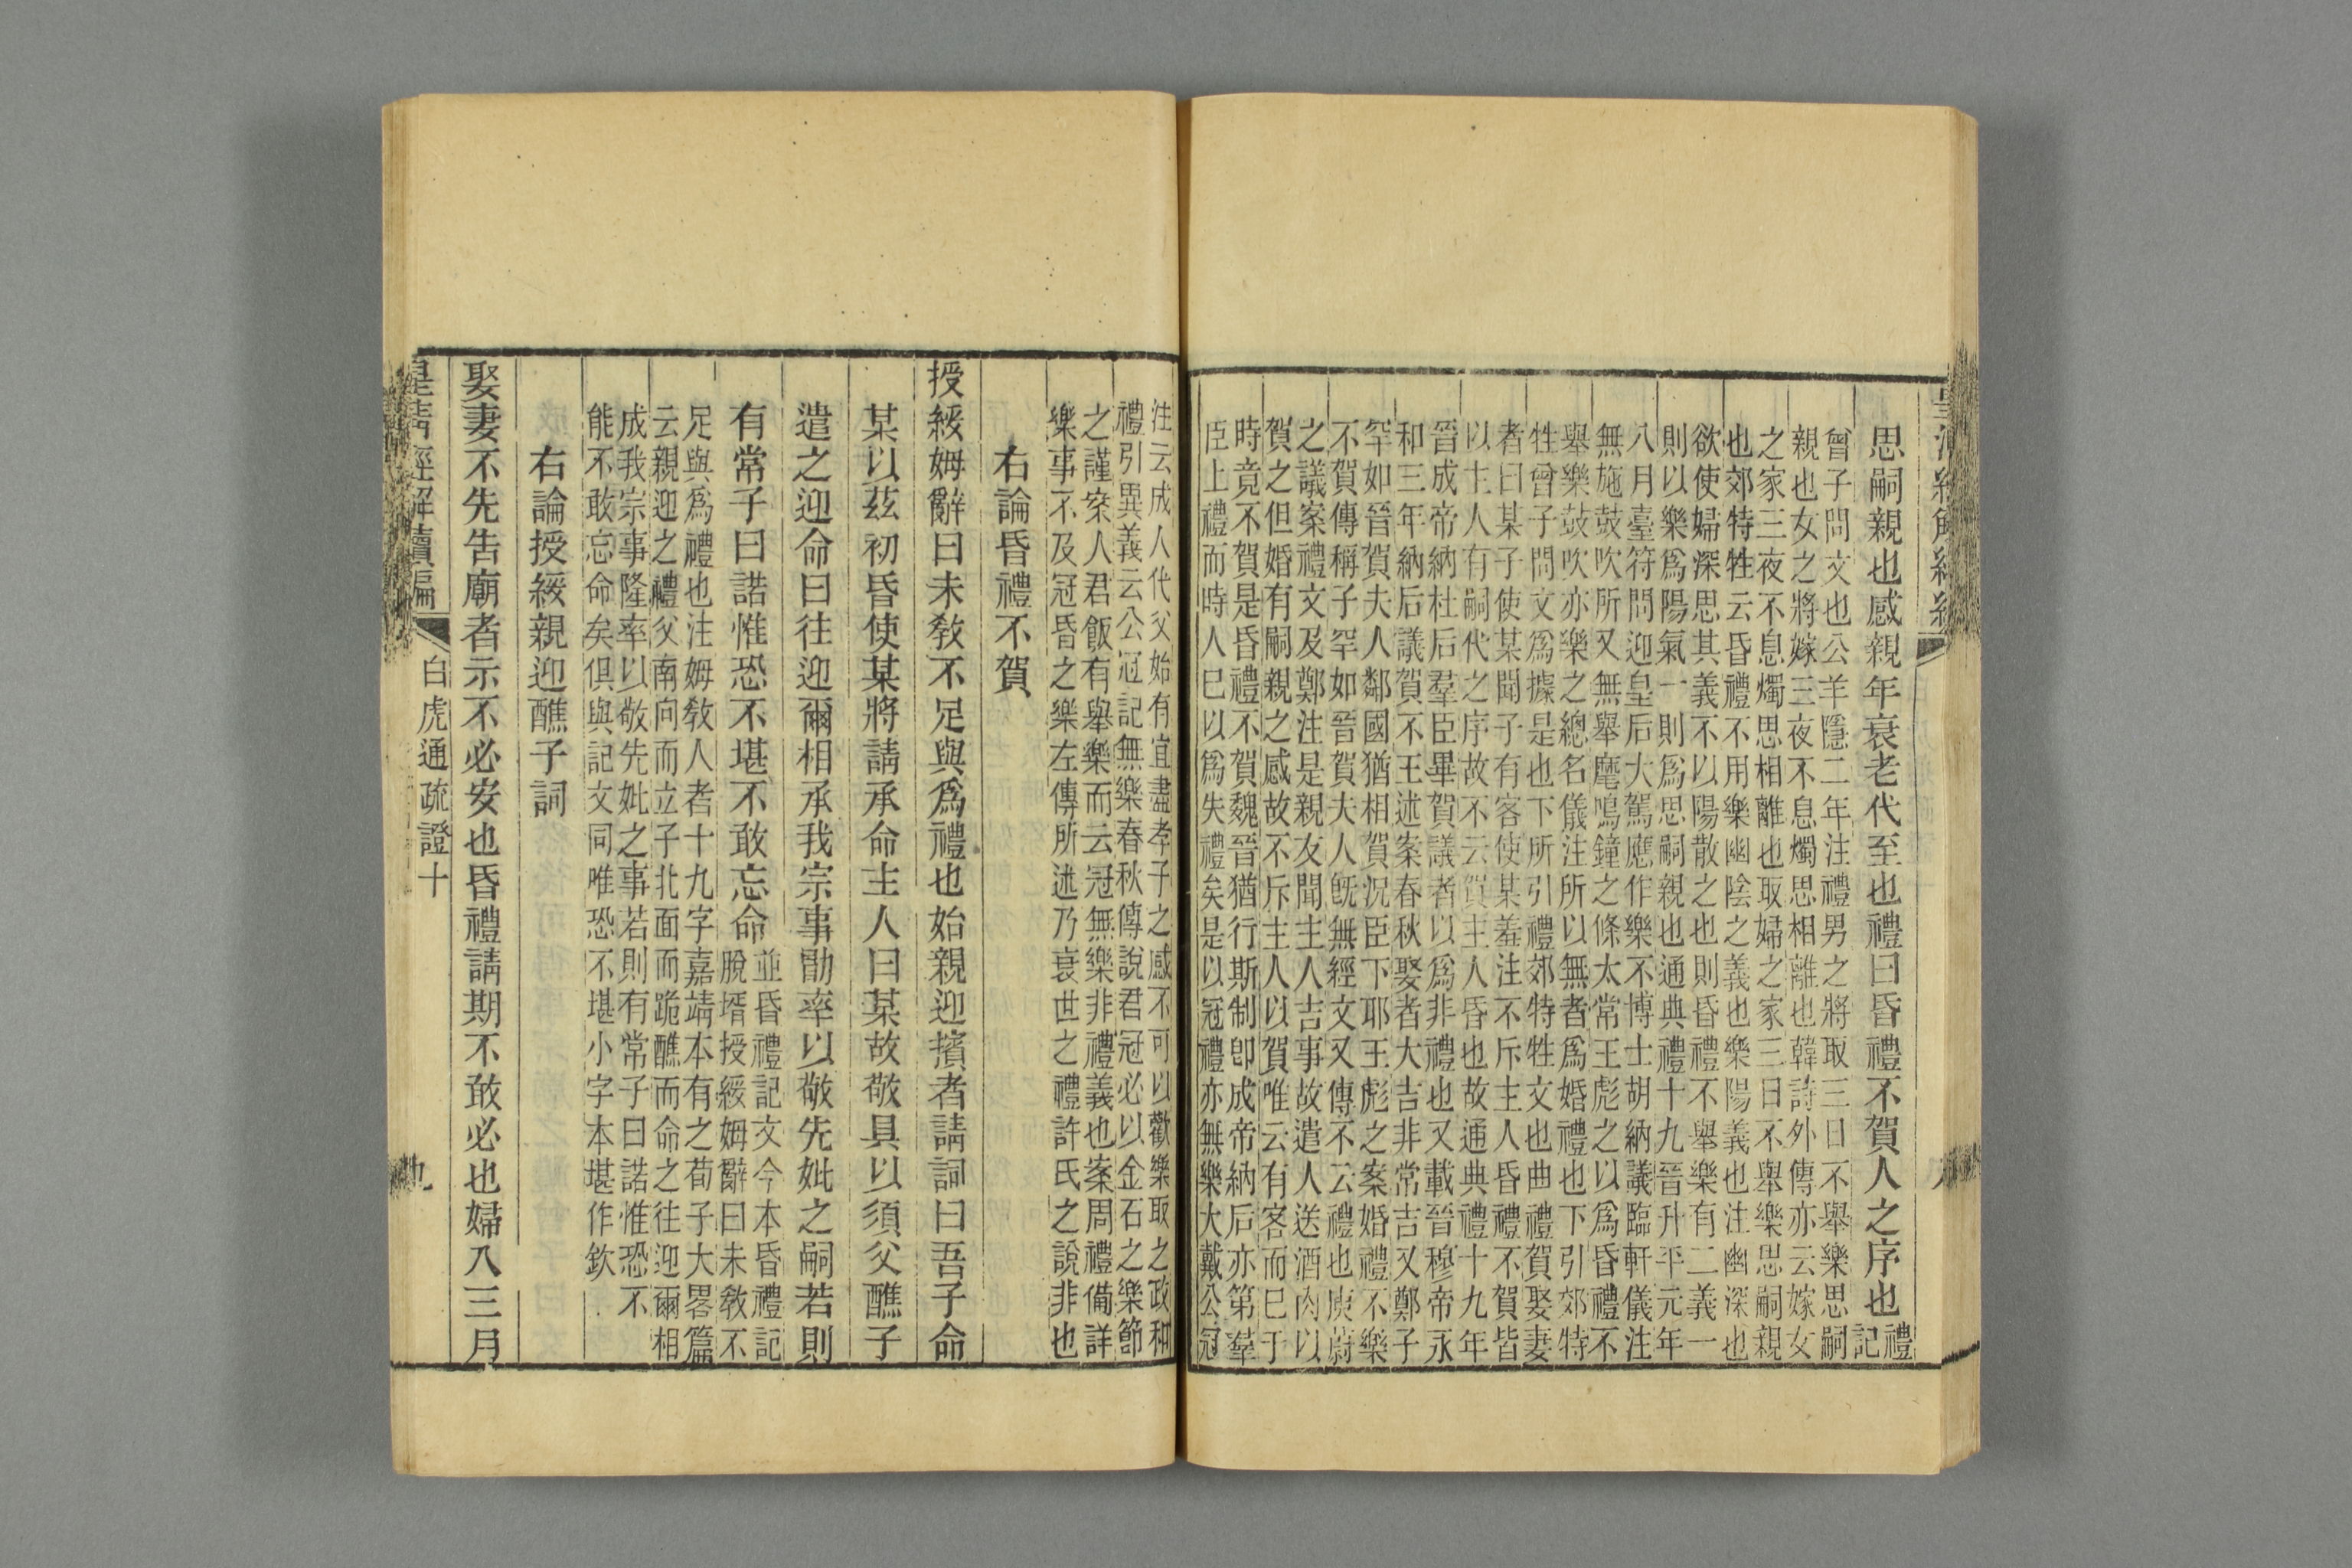 思嗣親也感親年衰老代至也禮曰昏禮不賀人之序也禮
記
曾子問文也公羊隱二年注禮男之將取三日不舉樂思嗣
親也女之將嫁三夜不息燭思相離也韓詩外傳亦云嫁女
之家三夜不息燭思相離也取婦之家三日不舉樂思嗣親
也郊特牲云昏禮不用樂幽陰之義也樂陽義也注幽深也
欲使婦深思其義不以陽散之也則昏禮不舉樂有二義一
則以樂爲陽氣一則爲思嗣親也通典禮十九晉升平元年
八月臺符問迎皇后大駕應作樂不博士胡納議臨軒儀注
無施鼓吹所又無舉麾鳴鐘之條太常王彪之以爲昏禮不
舉樂鼓吹亦樂之總名儀注所以無者爲婚禮也下引郊特
牲曾子問文爲據是也下所引禮郊特牲文也曲禮賀娶妻
者曰某子使某聞子有客使某羞注不斥主人昏禮不賀皆
以主人有嗣代之序故不云賀主人昏也故通典禮十九年
晉成帝納杜后羣臣畢賀議者以爲非禮也又載晉穆帝永
和三年納后議賀不王述案春秋娶者大吉非常吉又鄭子
罕如晉賀夫人鄰國猶相賀況臣下耶王彪之案婚禮不樂
不賀傳稱子罕如晉賀夫人旣無經文又傳不云禮也庾蔚
之議案禮文及鄭注是親友聞主人吉事故遣人送酒肉以
賀之但婚有嗣親之感故不斥主人以賀唯云有客而已于
時竟不賀是昏禮不賀魏晉猶行斯制卽成帝納后亦第羣
臣上禮而時人已以爲失禮矣是以冠禮亦無樂大戴公冠
注云成人代父始有宜盡孝子之感不可以歡樂取之政和
禮引異義云公冠記無樂春秋傳說君冠必以金石之樂節
之謹案人君飯有舉樂而云冠無樂非禮義也案周禮備詳
樂事不及冠昏之樂左傳所述乃衰世之禮許氏之說非也
右論昏禮不賀
授綏姆辭曰未敎不足與爲禮也始親迎擯者請詞曰吾子命
某以茲初昏使某將請承命主人曰某故敬具以須父醮子
遣之迎命曰往迎爾相承我宗事勖率以敬先妣之嗣若則
有常子曰諾惟恐不堪不敢忘命並昏禮記文今本昏禮記
脫壻授綏姆辭曰未敎不
足與爲禮也注姆敎人者十九字嘉靖本有之荀子大畧篇
云親迎之禮父南向而立子北面而跪醮而命之往迎爾相
成我宗事隆率以敬先妣之事若則有常子曰諾惟恐不
能不敢忘命矣俱與記文同唯恐不堪小字本堪作欽
右論授綏親迎醮子詞
娶妻不先告廟者示不必安也昏禮請期不敢必也婦入三月
皇淸經解續編
白虎通疏證十
九